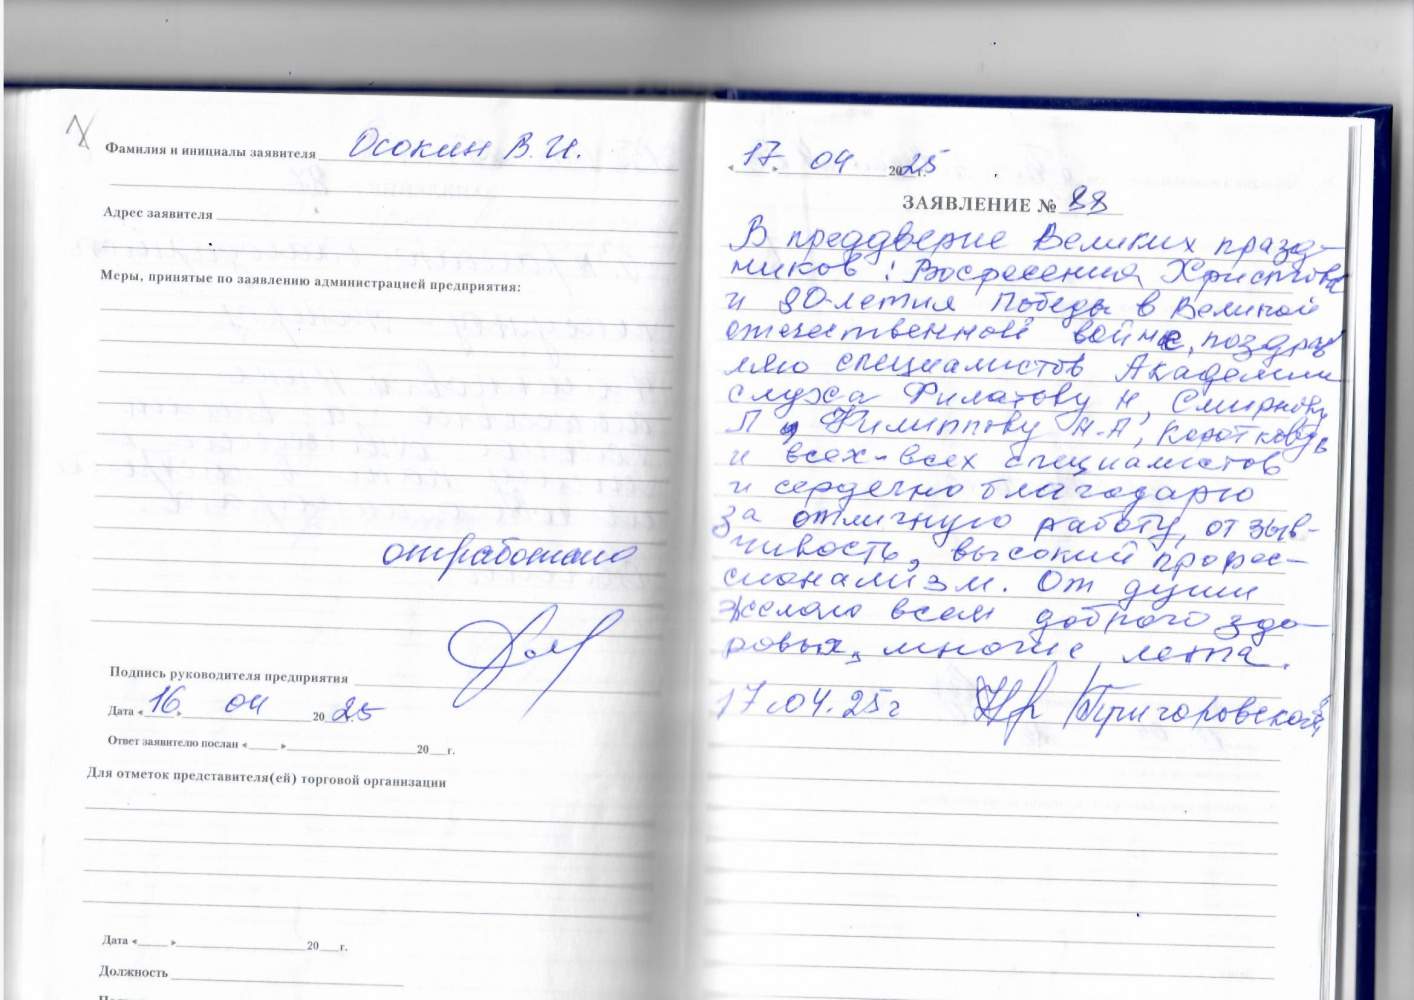 Фамилия и инициалы заявителя Осокин В. И.
Адрес заявителя
Меры, принятые по заявлению администрацией предприятия:
отработано
Подпись руководителя предприятия
Дата «16» 04 2025
Ответ заявителю послан « » 20 г.
Для отметок представителя(ей) торговой организации
Дата « » 20 г.
Должность
«17» 04 2025 г.
ЗАЯВЛЕНИЕ № 88
В преддверие Великих празд-
ников: Воскресения Христова
и 80-летия Победы в Великой
отечественной войне, поздрав
ляю специалистов Академии
слуха Филатову Н, Смирнову
Л, Филиппову Н.А, Короткову
и всех-всех специалистов
и сердечно благодарю
за отличную работу, отзыв-
чивость, высокий профес-
сионализм. От души
желаю всем доброго здо-
ровья, многие лета.
17.04.25г Пригоровской